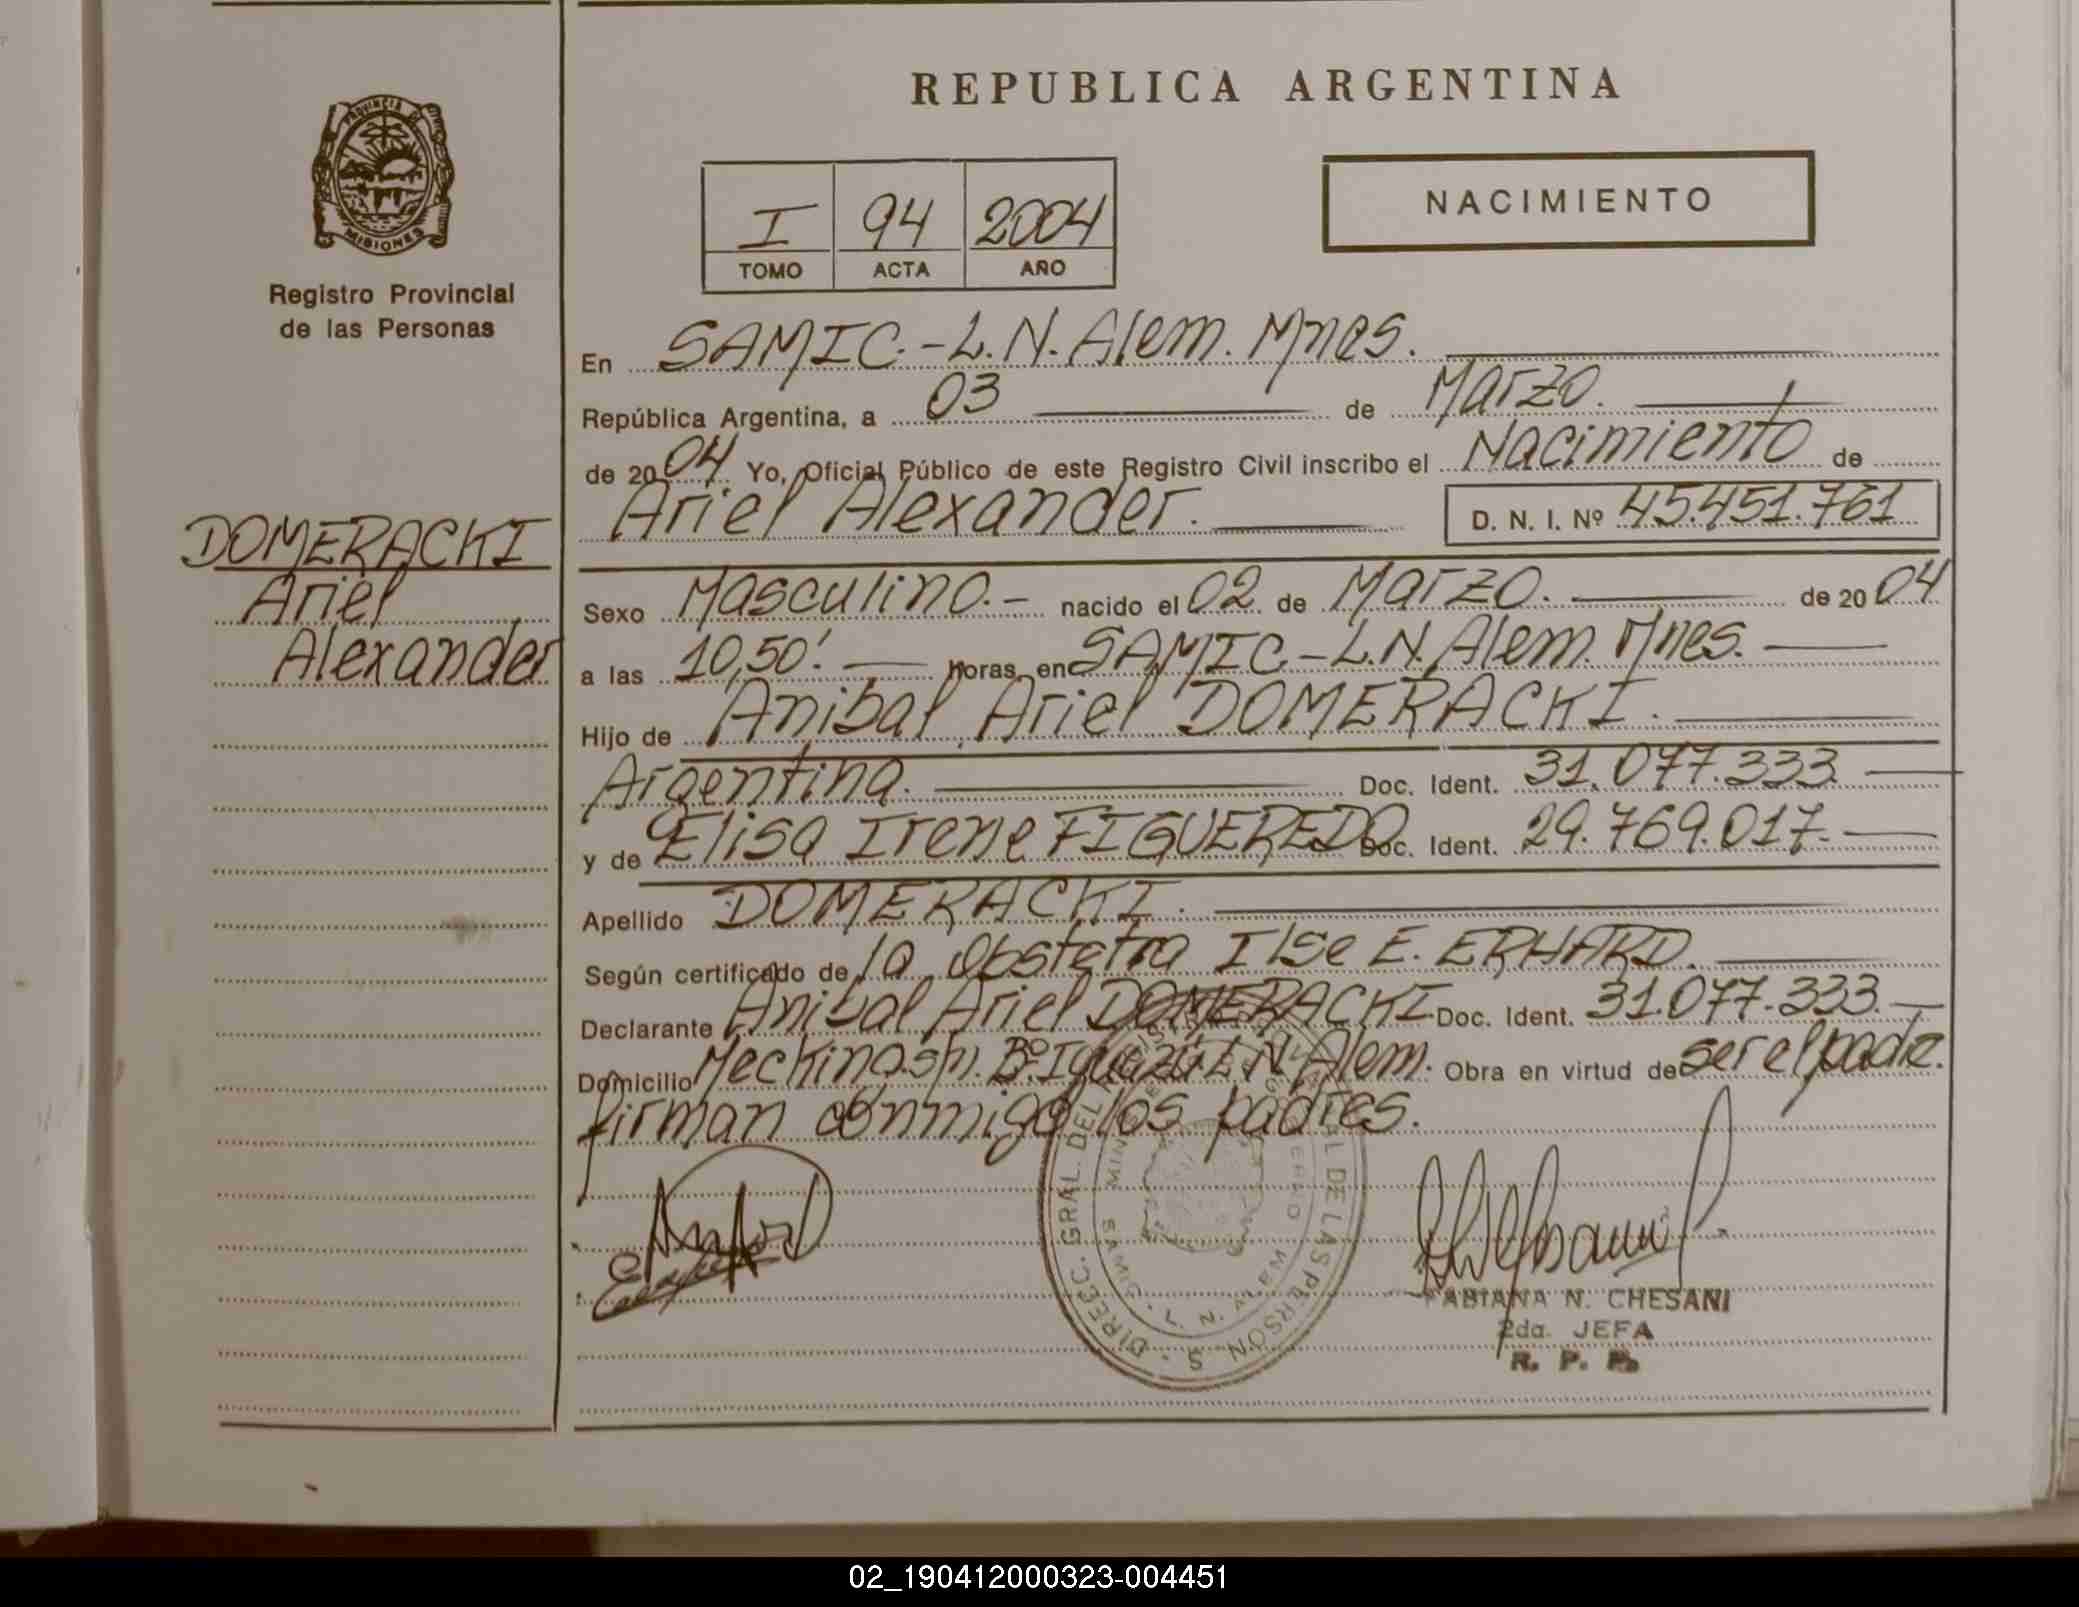 REPUBLICA ARGENTINA
PROVINCIA DE
MISIONES
Registro Provincial
de las Personas
I 94 2004
TOMO ACTA AÑO
NACIMIENTO
En SAMIC.-L.N.Alem. Mnes.
República Argentina, a 03 de Marzo.
de 2004 Yo, Oficial Público de este Registro Civil inscribo el Nacimiento de
Ariel Alexander. D. N. I. Nº 45.451.761
DOMERACKI
Ariel
Alexander
Sexo Masculino.- nacido el 02 de Marzo. de 2004
a las 10,50'. horas, en SAMIC-L.N.Alem. Mnes.
Hijo de Anibal Ariel DOMERACKI.
Argentina. Doc. Ident. 31.077.333.
y de Elisa Irene FIGUEREDO Doc. Ident. 29.769.017.
Apellido DOMERACKI.
Según certificado de la Obstetra Ilse E. ERHARD.
Declarante Anibal Ariel DOMERACKI Doc. Ident. 31.077.333.
Domicilio Meckinas h. Bº Iguazú L N Alem. Obra en virtud de ser el padre.
firman conmigo los padres.
DIRECC. GRAL. DEL DE LAS PERSONAS
SAMIC - L. N. ALEM
FABIANA N. CHESANI
2da. JEFA
R. P. P.
02_190412000323-004451